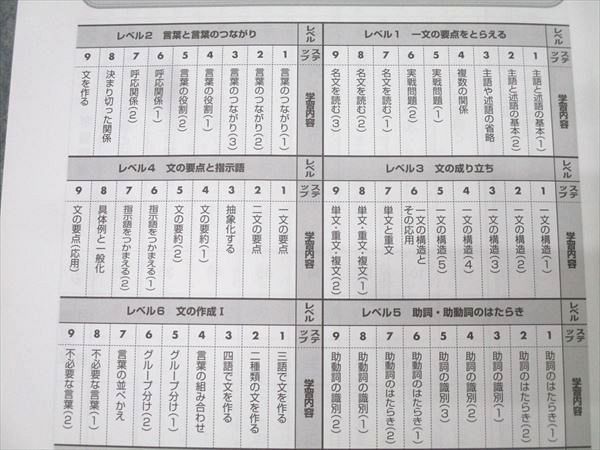 レベル
レベル1 一文の要点をとらえる
ステップ
学習内容
1 主語と述語の基本(1)
2 主語と述語の基本(2)
3 主語や述語の省略
4 複数の関係
5 実戦問題(1)
6 実戦問題(2)
7 名文を読む(1)
8 名文を読む(2)
9 名文を読む(3)
レベル
レベル2 言葉と言葉のつながり
ステップ
学習内容
1 言葉のつながり(1)
2 言葉のつながり(2)
3 言葉のつながり(3)
4 言葉の役割(1)
5 言葉の役割(2)
6 呼応関係(1)
7 呼応関係(2)
8 決まり切った関係
9 文を作る
レベル
レベル3 文の成り立ち
ステップ
学習内容
1 一文の構造(1)
2 一文の構造(2)
3 一文の構造(3)
4 一文の構造(4)
5 一文の構造(5)
6 一文の構造と
その応用
7 単文と重文
8 単文・重文・複文(1)
9 単文・重文・複文(2)
レベル
レベル4 文の要点と指示語
ステップ
学習内容
1 一文の要点
2 二文の要点
3 抽象化する
4 文の要約(1)
5 文の要約(2)
6 指示語をつかまえる(1)
7 指示語をつかまえる(2)
8 具体例と一般化
9 文の要点(応用)
レベル
レベル5 助詞・助動詞のはたらき
ステップ
学習内容
1 助詞のはたらき(1)
2 助詞のはたらき(2)
3 助詞の識別(1)
4 助詞の識別(2)
5 助詞の識別(3)
6 助動詞のはたらき(1)
7 助動詞のはたらき(2)
8 助動詞の識別(1)
9 助動詞の識別(2)
レベル
レベル6 文の作成Ⅰ
ステップ
学習内容
1 三語で文を作る
2 二種類の文を作る
3 四語で文を作る
4 言葉の組み合わせ
5 グループ分け(1)
6 グループ分け(2)
7 言葉の並べかえ
8 不必要な言葉(1)
9 不必要な言葉(2)